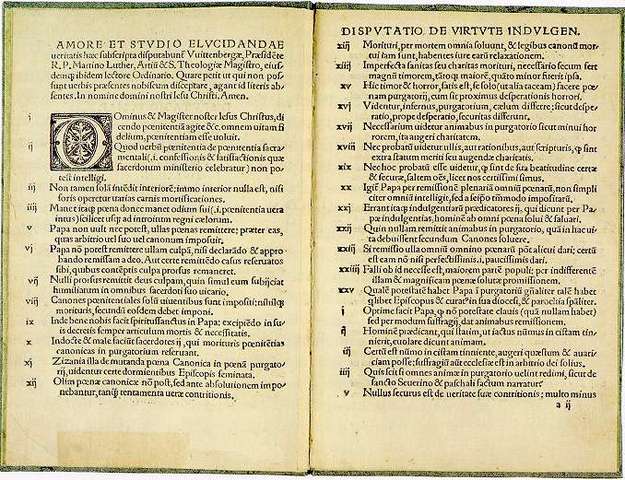 AMORE ET STVDIO ELVCIDANDAE
ueritatis hæc subscripta disputabunť Vuittenbergæ, Præsidéte
R. P. Martino Luther, Artiũ & S. Theologiæ Magistro, eius-
demq; ibidem lectore Ordinatio. Quare petit ut qui non pos-
sunt uerbis præsentes nobiscum disceptare, agant id literis ab-
sentes. In nomine domini nostri Iesu Christi. Amen.
i DOminus & Magister noster Iesus Christus, di-
cendo pœnitentiã agite &c, omnem uitam fi
delium, pœnitentiam esse uoluit.
ij Quod uerbũ pœnitentia de pœnitentia sacra-
mentali (.i. confessionis & satisfactionis quæ
sacerdotum ministerio celebratur) non po-
test intelligi.
iij Non tamen solã intẽdit interiorẽ; immo interior nulla est, nisi
foris operetur uarias carnis mortificationes.
iiij Manet itaq; pœna donec manet odium sui (.i. pœnitentia uera
intus) scilicet usq; ad introitum regni cælorum.
v Papa non uult nec potest, ullas pœnas remittere; præter eas,
quas arbitrio uel suo uel canonum imposuit.
vj Papa nõ potest remittere ullam culpã, nisi declarãdo & appro-
bando remissam a deo. Aut certe remittẽdo casus reseruatos
sibi, quibus contẽptis culpa prorsus remaneret.
vij Nulli prorsus remittit deus culpam, quin simul eum subijciat
humiliatum in omnibus sacerdoti suo uicario.
viij Canones pœnitentiales solũ uiuentibus sunt impositi; nihilq;
morituris, secundũ eosdem debet imponi.
ix Inde bene nobis facit spiritussanctus in Papa: excipiẽdo in su-
is decretis semper articulum mortis & necessitatis.
x Indocte & male faciũt sacerdotes ij, qui morituris pœnitẽtias
canonicas in purgatorium reseruant.
xj Zizania illa de mutanda pœna Canonica in pœnã purgato-
rij, uidentur certe dormientibus Episcopis seminata.
xij Olim pœnæ canonicæ nõ post, sed ante absolutionem impo-
nebantur, tanq̃ tentamenta ueræ contritionis.
DISPVTATIO DE VIRTVTE INDVLGEN.
xiij Morituri, per mortem omnia soluunt, & legibus canonũ mor-
tui iam sunt, habentes iure earũ relaxationem.
xiiij Imperfecta sanitas seu charitas morituri, necessario secum fert
magnũ timorem, tãtoq; maiorẽ, quãto minor fuerit ipsa.
xv Hic timor & horror, satis est, se solo (ut alia taceam) facere pœ-
nam purgatorij, cum sit proximus desperationis horrori.
xvj Videntur, infernus, purgatorium, cælum differre; sicut despe-
ratio, prope desperatio, securitas differunt.
xvij Necessarium uidetur animabus in purgatorio sicut minui hor-
rorem, ita augeri charitatem.
xviij Nec probatũ uidetur ullis, aut rationibus, aut scripturis, q̃ sint
extra statum meriti seu augendæ charitatis.
xix Nec hoc probatũ esse uidetur, q̃ sint de sua beatitudine certæ
& securæ, saltem oẽs, licet nos certissimi simus.
xx Igiť Papa per remissionẽ plenariã omniũ pœnarũ, non simpli
citer omniũ intelligit, sed a seipo tm̃modo impositarũ.
xxj Errant itaq; indulgentiarũ prædicatores ij, qui dicunt per Pa-
pæ indulgentias, hominẽ ab omni pœna solui & saluari.
xxij Quin nullam remittit animabus in purgatorio, quã in hac ui-
ta debuissent secundum Canones soluere.
xxiij Si remissio ulla omniũ omnino pœnarũ põt alicui dari; certũ
est eam nõ nisi perfectissimis .i. paucissimis dari.
xxiiij Falli ob id necesse est, maiorem partẽ populi; per indifferentẽ
illam & magnificam pœnæ solutæ promissionem.
xxv Qualẽ potestatẽ habet Papa ĩ purgatoriũ gñaliter talẽ habet
q̃libet Episcopus & curatus in sua diocesi, & parochia spãliter.
i Optime facit Papa, q̃ nõ potestate clauis (quã nullam habet)
sed per modum suffragij, dat animabus remissionem.
ij Hominẽ prædicant, qui statim, ut iactus nũmus in cistam tin-
nierit, euolare dicunt animam.
iij Certũ est nũmo in cistam tinniente, augeri quæstum & auari-
ciam posse; suffragiũ aũt ecclesiæ est in arbitrio dei solius.
iiij Quis scit si omnes animæ in purgatorio uelint redimi, sicut de
sancto Seuerino & paschali factum narratur
v Nullus securus est de ueritate suæ contritionis; multo minus
a ij